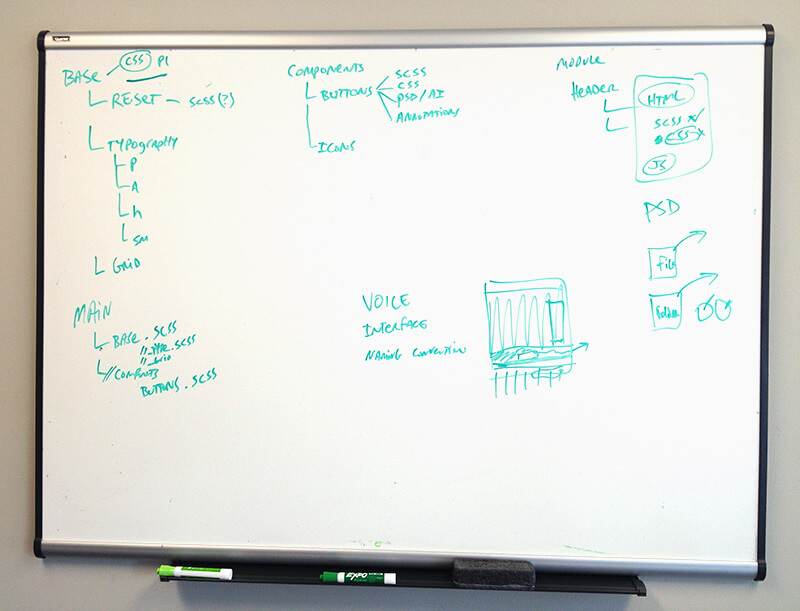 BASE CSS P1
RESET - SCSS(?)
TYPOGRAPHY
P
A
h
SM
GRID
MAIN
BASE.SCSS
"_type.SCSS
"_GRID
//COMPONENTS
BUTTONS.SCSS
COMPONENTS
BUTTONS
SCSS
CSS
PSD/AI
ANNOTATIONS
ICONS
VOICE
INTERFACE
NAMING CONVENTION
MODULE
HEADER
HTML
SCSS
CSS
JS
PSD
File
Folder
EXPO